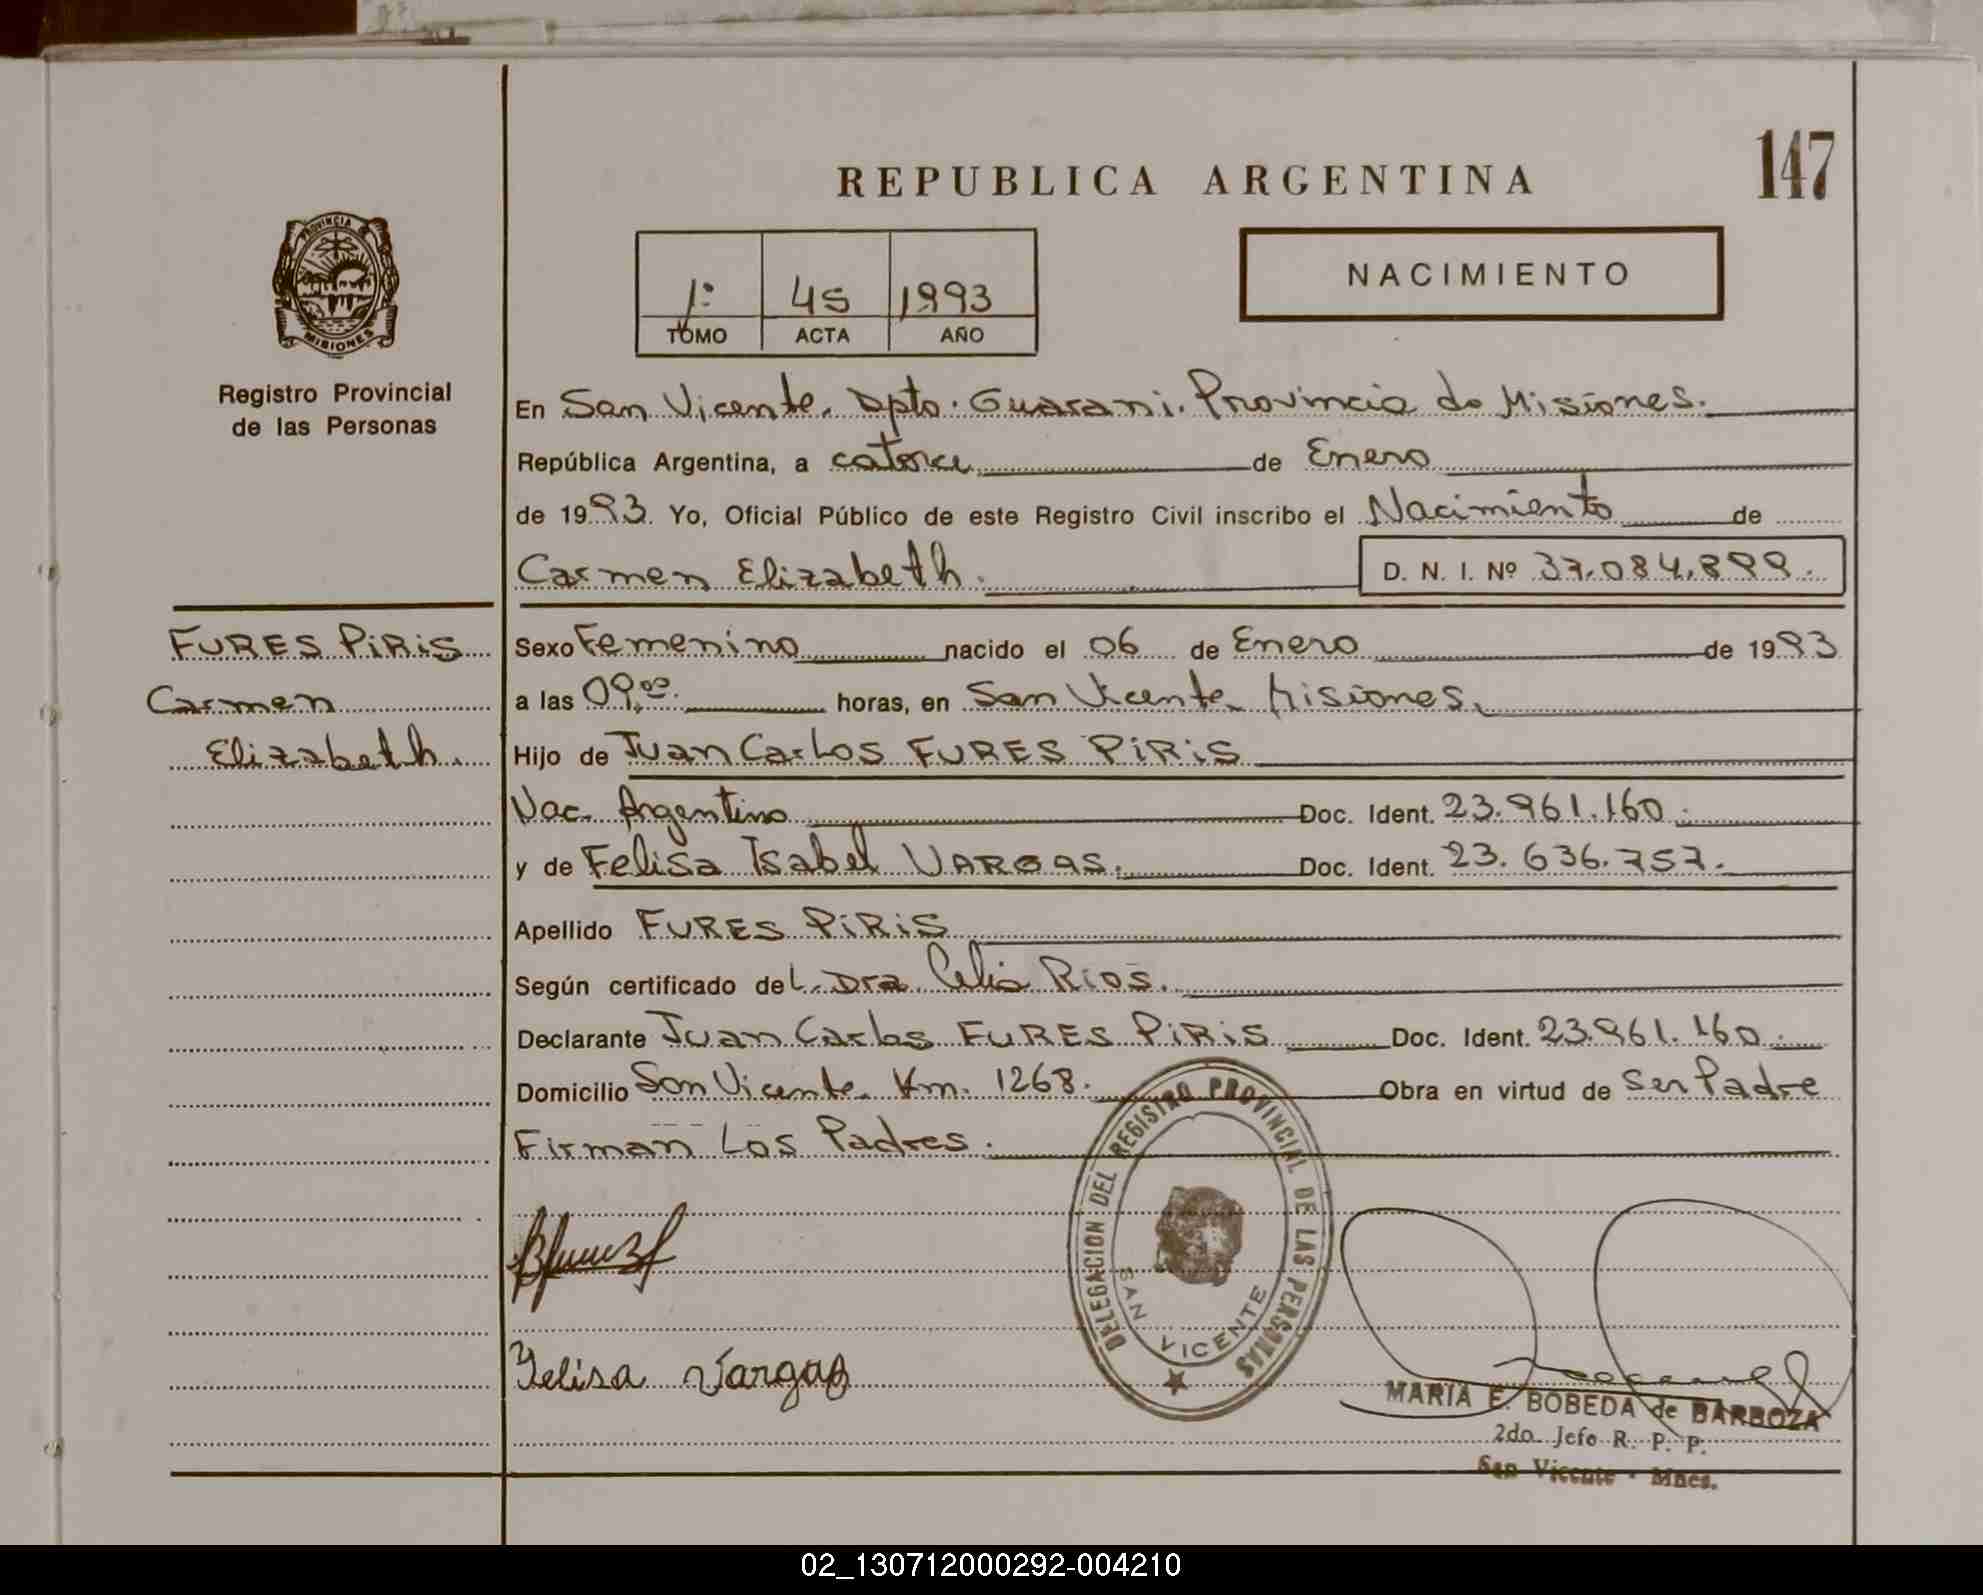 147
REPUBLICA ARGENTINA
PROVINCIA DE
MISIONES
Registro Provincial
de las Personas
1º 45 1993
TOMO ACTA AÑO
NACIMIENTO
En San Vicente. Dpto. Guarani. Provincia de Misiones.
República Argentina, a catorce de Enero
de 1993. Yo, Oficial Público de este Registro Civil inscribo el Nacimiento de
Carmen Elizabeth. D. N. I. Nº 37.084.899.
FURES PiRiS
Carmen
Elizabeth.
Sexo Femenino nacido el 06 de Enero de 1993
a las 09,00. horas, en San Vicente Misiones.
Hijo de Juan Carlos FURES PiRiS
Nac. Argentino Doc. Ident. 23.961.160.
y de Felisa Isabel VARGAS. Doc. Ident. 23.636.757.
Apellido FURES PiRiS
Según certificado del. Dra. Celia Rios.
Declarante Juan Carlos FURES PiRiS Doc. Ident. 23.961.160.
Domicilio San Vicente. Km. 1268. Obra en virtud de Ser Padre
Firman Los Padres.
DELEGACION DEL REGISTRO PROVINCIAL DE LAS PERSONAS
SAN VICENTE
Felisa Vargas
MARIA E. BOBEDA de BARBOZA
2do. Jefe R. P. P.
San Vicente - Mnes.
02_130712000292-004210